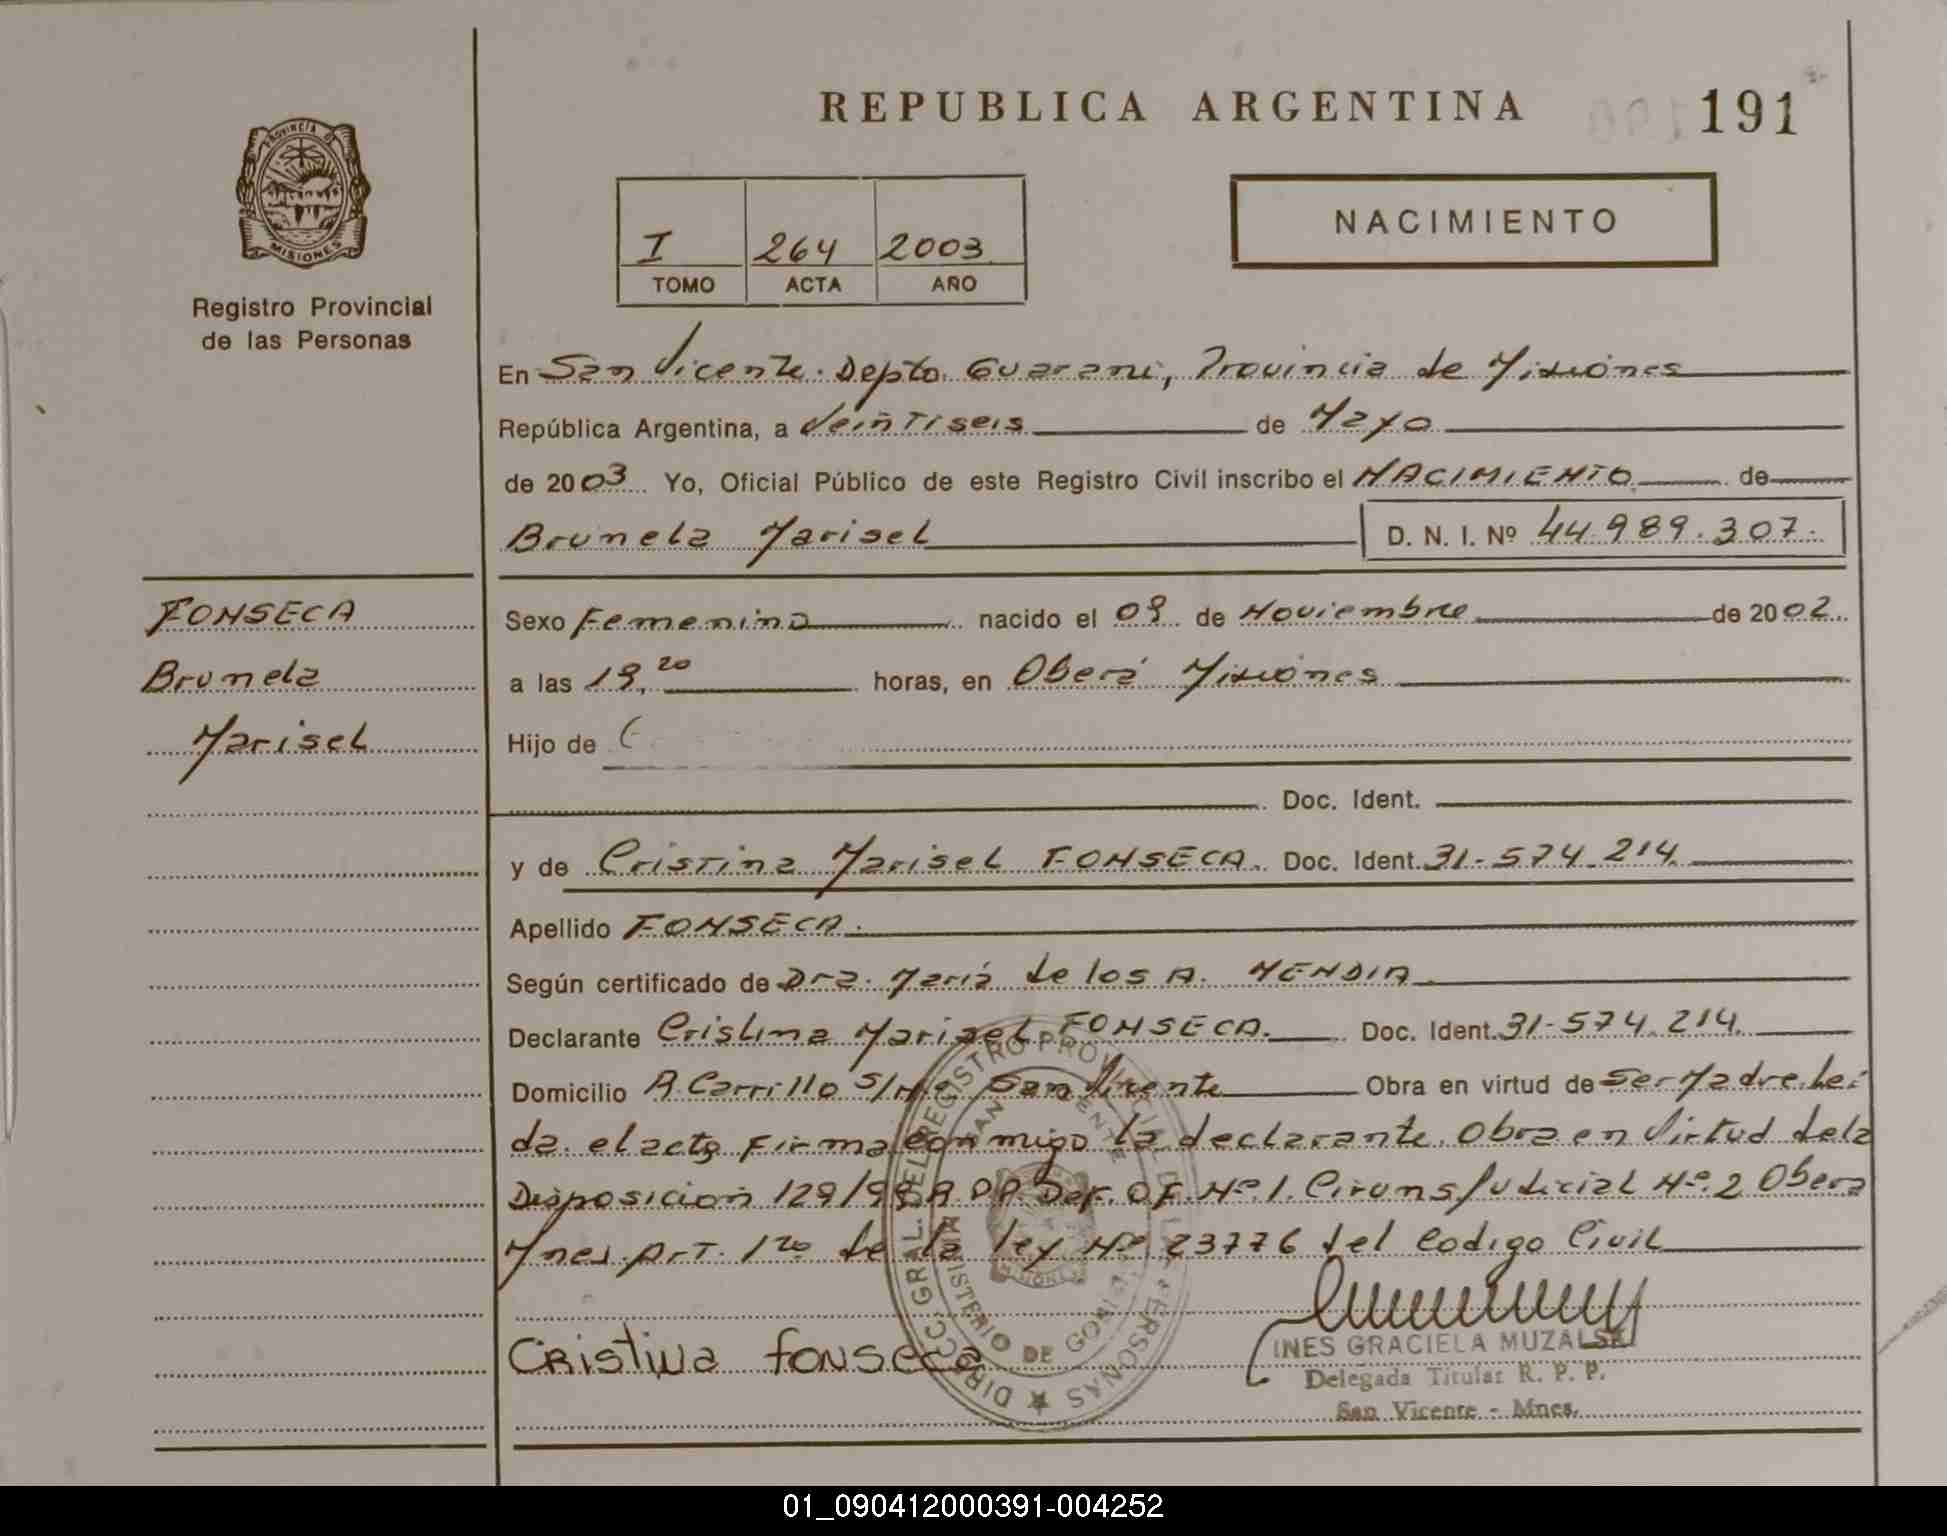 REPUBLICA ARGENTINA
191
PROVINCIA DE
MISIONES
Registro Provincial
de las Personas
I 264 2003
TOMO ACTA AÑO
NACIMIENTO
En San Vicente. Depto. Guarani, Provincia de Misiones
República Argentina, a Veintiseis de Mayo
de 2003 Yo, Oficial Público de este Registro Civil inscribo el NACIMIENTO de
Brunela Marisel D. N. I. Nº 44.989.307.
FONSECA
Brunela
Marisel
Sexo Femenino nacido el 09 de Noviembre de 2002
a las 19,20 horas, en Oberá Misiones
Hijo de
Doc. Ident.
y de Cristina Marisel FONSECA. Doc. Ident. 31-574.214
Apellido FONSECA.
Según certificado de Dra. María de los A. MENDIA
Declarante Cristina Marisel FONSECA. Doc. Ident. 31-574.214
Domicilio A. Carrillo S/Nº San Vicente Obra en virtud de ser Madre. Leí
da el acta firma conmigo la declarante. Obra en Virtud de la
Disposicion 129/99 Def. OF. Nº 1. Circuns Judicial Nº 2 Obera
Mnes. Art. 1º de la ley Nº 23776 del Codigo Civil
Cristina Fonseca
INES GRACIELA MUZALSK
Delegada Titular R. P. P.
San Vicente - Mnes.
DIRECC. GRAL. DEL REGISTRO PROVINCIAL DE LAS PERSONAS
SAN VICENTE
MINISTERIO DE
MISIONES
01_090412000391-004252